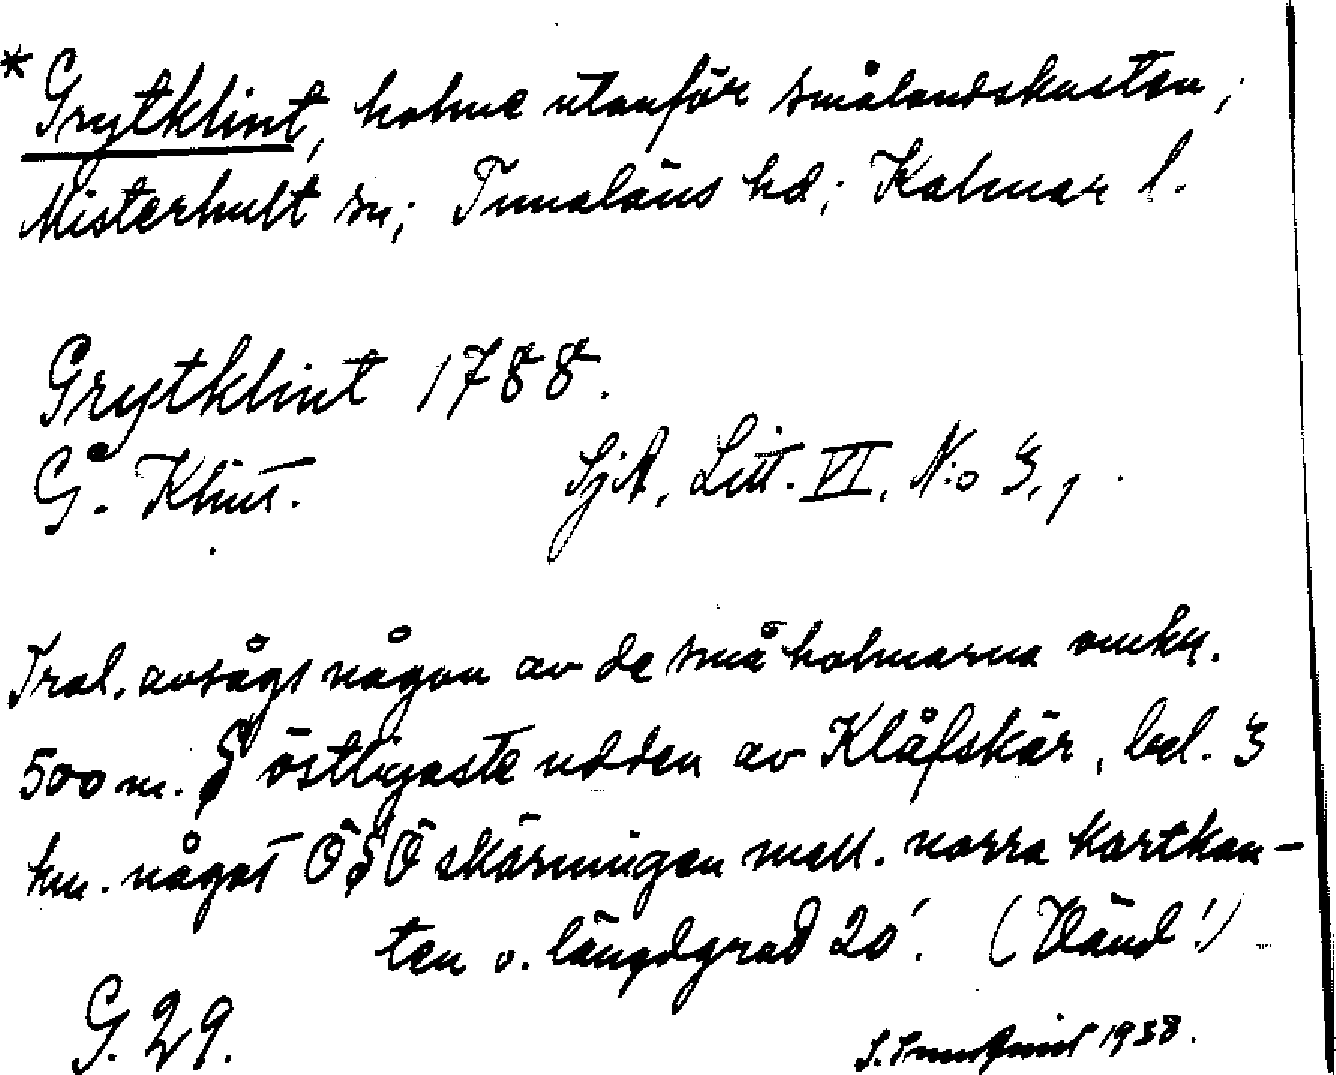 * Grytklint, holme utanför smålandskusten;
Misterhult sn; Tunaläns hd; Kalmar l.
Grytklint 1788.
G. Klint. SjA, Litt. VI, N:o 3, 1.
Trol. avsågs någon av de små holmarna omkr.
500 m. S östligaste udden av Klåfskär, bel. 3
km. något ÖSÖ skärningen mell. norra kartkan-
ten o. längdgrad 20'. (Vänd!)
G. 29.
1938.